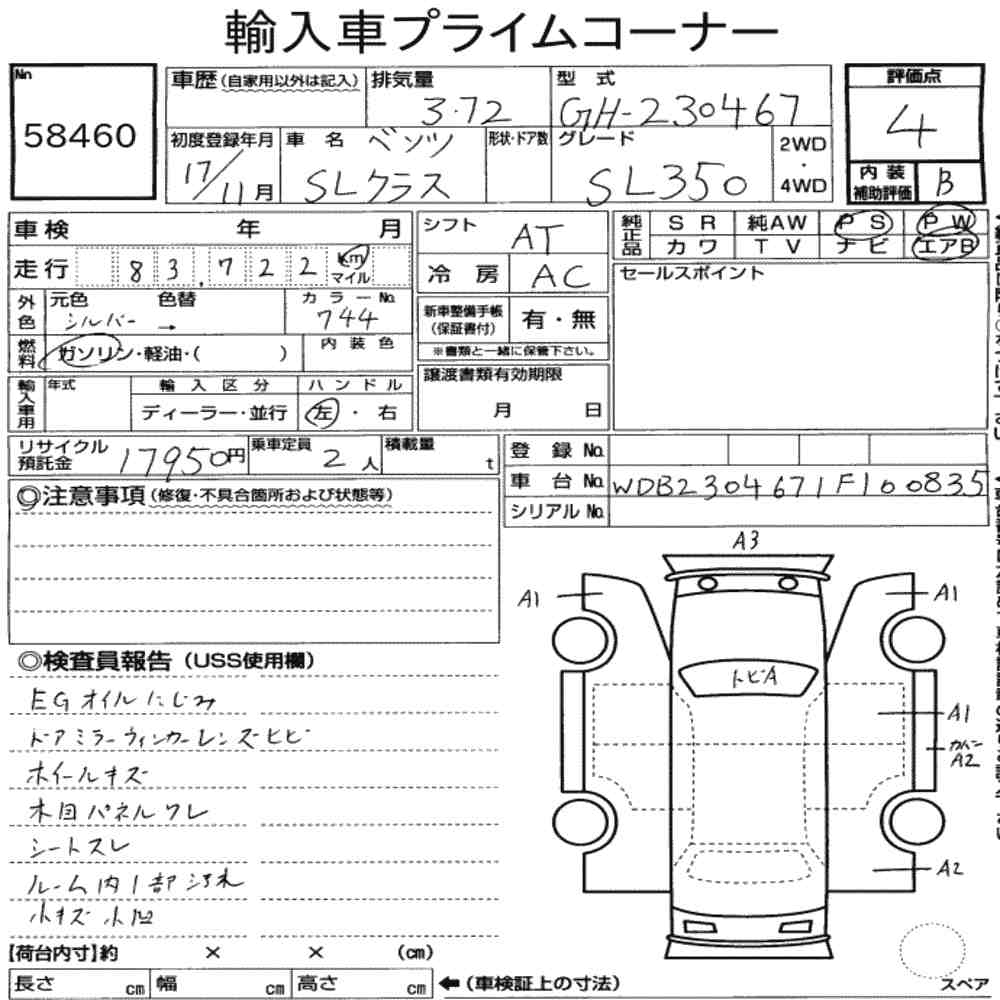 輸入車プライムコーナー
No.
58460
車歴 (自家用以外は記入) 排気量 3.72 型式 GH-230467
初度登録年月 17/11月 車名 ベンツ SLクラス 形状・ドア数 グレード SL350 2WD・4WD
評価点 4
内装補助評価 B
車検 年 月
走行 83,722 Km マイル
外色 元色 シルバー → 色替 カラーNo. 744
燃料 ガソリン・軽油・( ) 内装色
輸入車用 年式 輸入区分 ディーラー・並行 ハンドル 左・右
シフト AT
冷房 AC
新車整備手帳 (保証書付) 有・無
※書類と一緒に保管下さい。
譲渡書類有効期限
月 日
純正品 SR 純AW PS PW
カワ TV ナビ エアB
セールスポイント
リサイクル預託金 17950円 乗車定員 2人 積載量 t
登録No.
車台No. WDB2304671F100835
シリアルNo.
◎注意事項 (修復・不具合箇所および状態等)
◎検査員報告 (USS使用欄)
EGオイルにじみ
ドアミラーウィンカーレンズヒビ
ホイールキズ
木目パネルワレ
シートスレ
ルーム内1部汚れ
小キズ小凹
A3
A1
A1
トビA
A1
カバン
A2
A2
【荷台内寸】約 × × (cm)
長さ cm 幅 cm 高さ cm ←(車検証上の寸法)
スペア